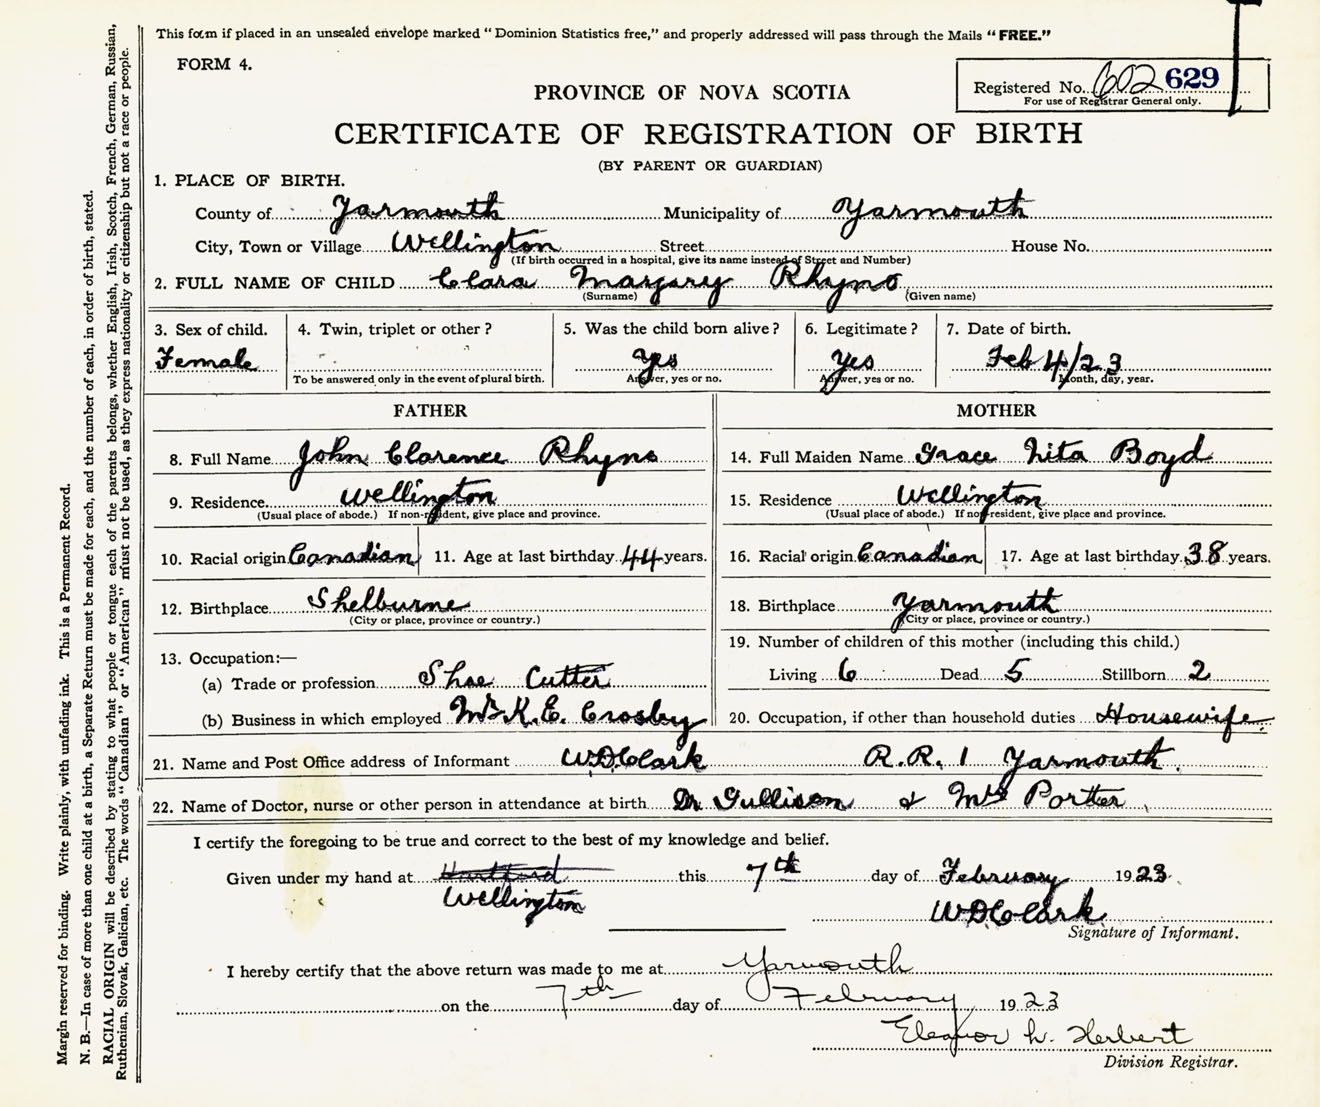 This form if placed in an unsealed envelope marked "Dominion Statistics free," and properly addressed will pass through the Mails "FREE."
FORM 4.
Registered No. 602 629
For use of Registrar General only.
PROVINCE OF NOVA SCOTIA
CERTIFICATE OF REGISTRATION OF BIRTH
(BY PARENT OR GUARDIAN)
1. PLACE OF BIRTH.
County of Yarmouth Municipality of Yarmouth
City, Town or Village Wellington Street House No.
(If birth occurred in a hospital, give its name instead of Street and Number)
2. FULL NAME OF CHILD Clara Margary Rhyno
(Surname) (Given name)
3. Sex of child. 4. Twin, triplet or other? 5. Was the child born alive? 6. Legitimate? 7. Date of birth.
Female Yes Yes Feb 4/23
To be answered only in the event of plural birth. Answer, yes or no. Answer, yes or no. Month, day, year.
FATHER MOTHER
8. Full Name John Clarence Rhyno 14. Full Maiden Name Grace Nita Boyd
9. Residence Wellington 15. Residence Wellington
(Usual place of abode.) If non-resident, give place and province. (Usual place of abode.) If non-resident, give place and province.
10. Racial origin Canadian 11. Age at last birthday 44 years. 16. Racial origin Canadian 17. Age at last birthday 38 years.
12. Birthplace Shelburne 18. Birthplace Yarmouth
(City or place, province or country.) (City or place, province or country.)
13. Occupation:—
(a) Trade or profession Shoe Cutter
(b) Business in which employed Mr K. E. Crosby
19. Number of children of this mother (including this child.)
Living 6 Dead 5 Stillborn 2
20. Occupation, if other than household duties Housewife
21. Name and Post Office address of Informant W D Clark R.R. 1 Yarmouth
22. Name of Doctor, nurse or other person in attendance at birth Dr. Gullison & Mrs Porter
I certify the foregoing to be true and correct to the best of my knowledge and belief.
Given under my hand at Hartford this 7th day of February 1923
Wellington W D Clark
Signature of Informant.
I hereby certify that the above return was made to me at Yarmouth
on the 7th day of February 1923
Eleanor W. Herbert
Division Registrar.
Margin reserved for binding. Write plainly, with unfading ink. This is a Permanent Record.
N. B.—In case of more than one child at a birth, a Separate Return must be made for each, and the number of each, in order of birth, stated.
RACIAL ORIGIN will be described by stating to what people or tongue each of the parents belongs, whether English, Irish, Scotch, French, German, Russian,
Ruthenian, Slovak, Galician, etc. The words "Canadian" or "American" must not be used, as they express nationality or citizenship but not a race or people.